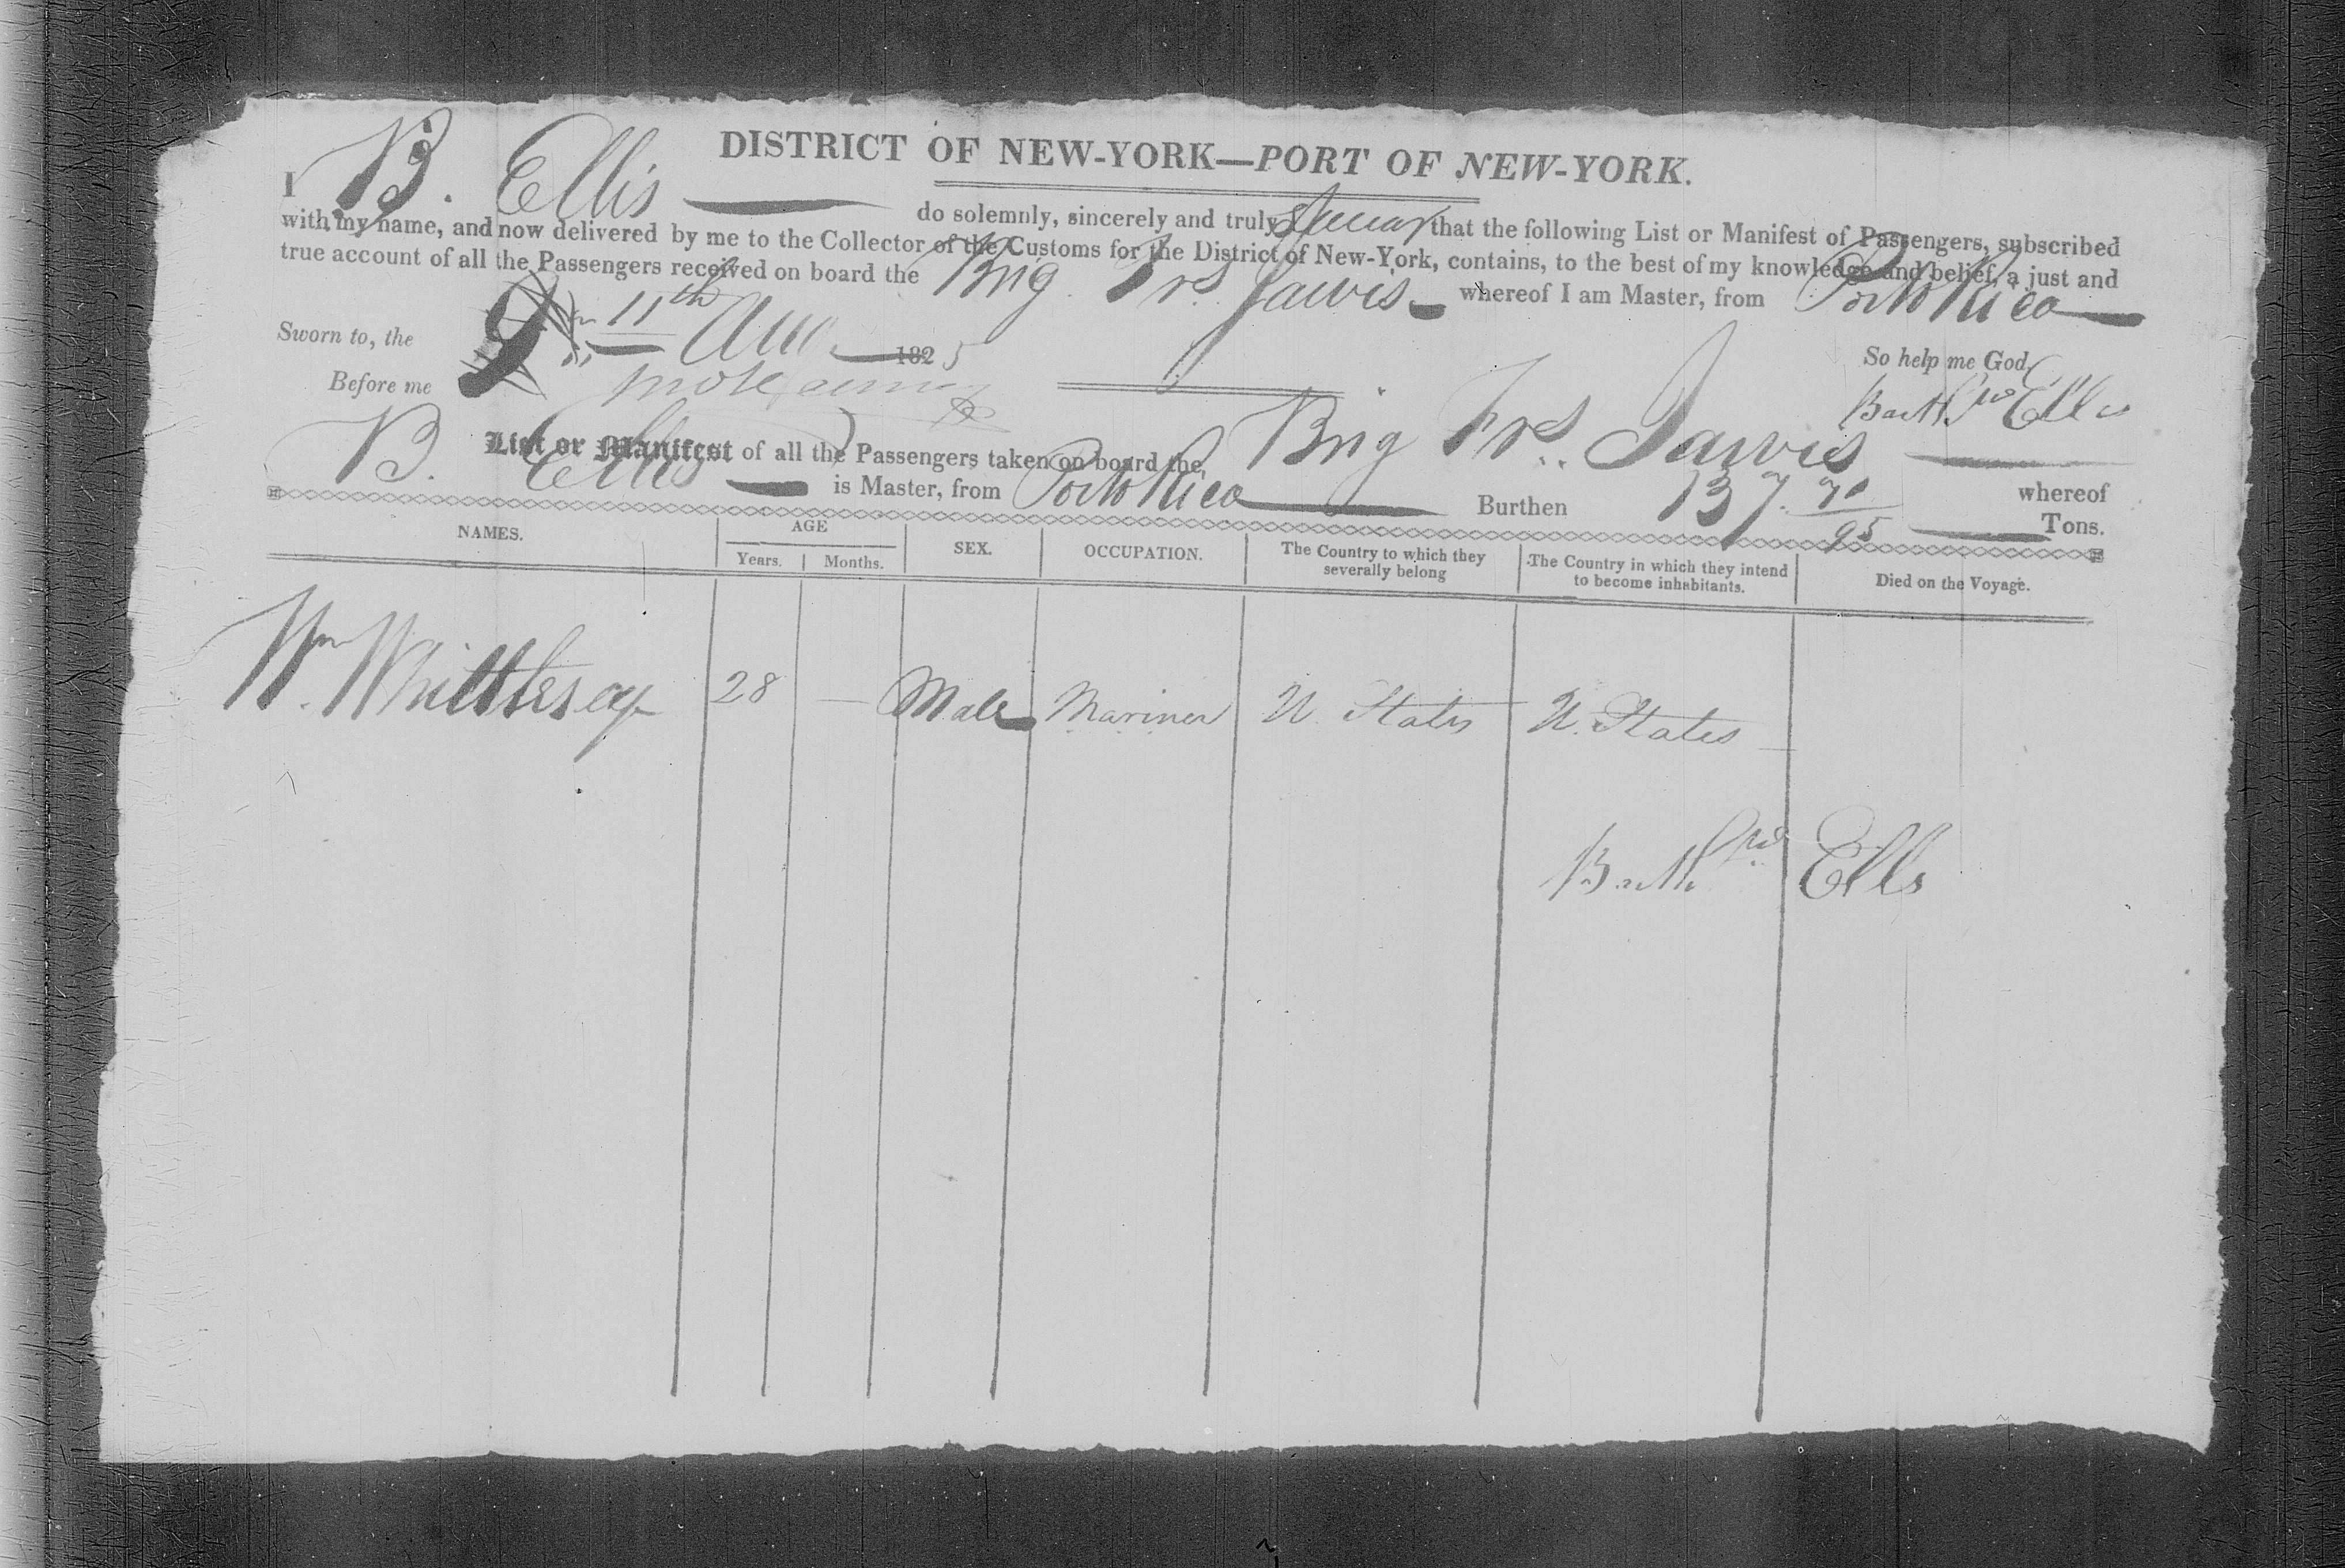 DISTRICT OF NEW-YORK—PORT OF NEW-YORK.
I B. Ellis do solemnly, sincerely and truly swear that the following List or Manifest of Passengers, subscribed
with my name, and now delivered by me to the Collector of the Customs for the District of New-York, contains, to the best of my knowledge and belief, a just and
true account of all the Passengers received on board the Brig Frs. Jarvis whereof I am Master, from Porto Rico
Sworn to, the 11th Aug 1825 So help me God,
Before me Barthw Ellis
List or Manifest of all the Passengers taken on board the Brig Frs. Jarvis whereof
B. Ellis is Master, from Porto Rico Burthen 137. 70/95 Tons.
NAMES. AGE SEX. OCCUPATION. The Country to which they severally belong The Country in which they intend to become inhabitants. Died on the Voyage.
Years. Months.
Wm Whittlesey 28 — Male Mariner U. States U. States
Barthw Ellis